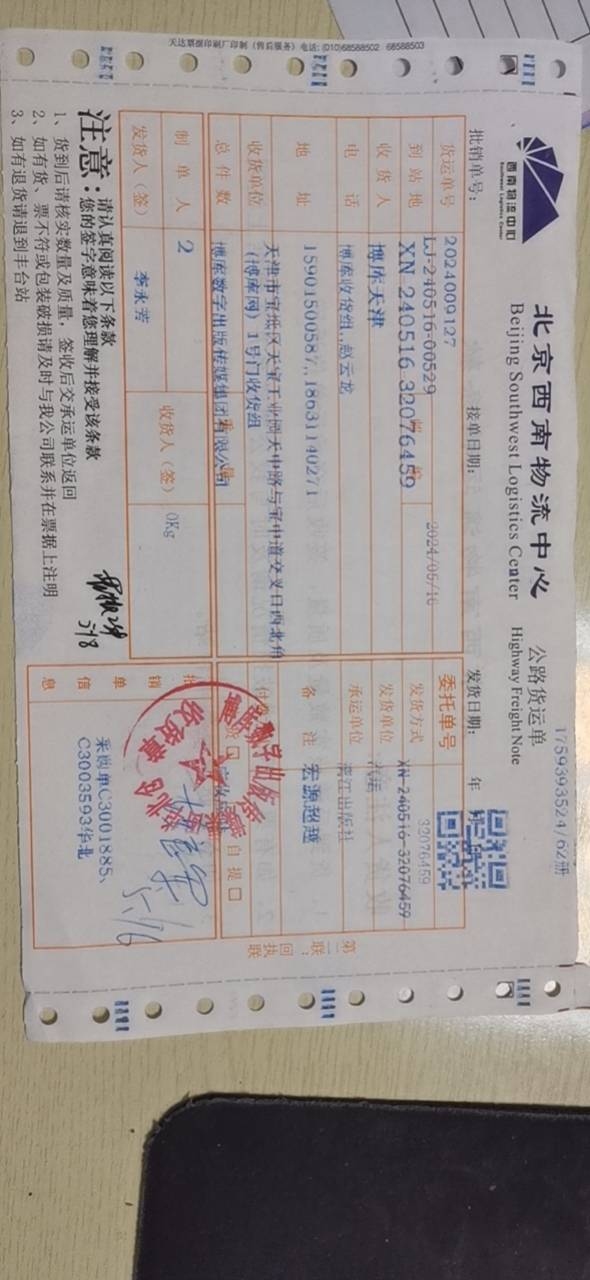 天达票据印刷厂印制（售后服务）电话：(010)68588502 68588503
1759393524/62册
西南物流中心
Southwest Logistics Center
北京西南物流中心 公路货运单
Beijing Southwest Logistics Center Highway Freight Note
批销单号： 接单日期： 发货日期： 年 月
2024009127
货运单号 LJ-240516-00529 2024/05/16 委托单号 32076459
到站地 XN 240516 32076459 发货方式 XN-240516-32076459
收货人 博库天津 发货单位 汽运
电话 博库收货组,,赵云龙 承运单位 漓江出版社
地址 15901500587,,18631140271 备注 宏源超越
天津市宝坻区天宝工业园天中路与宝中道交叉口西北角
收货单位 (博库网) 1号门收货组
总件数 博库数字出版传媒集团有限公司 自提口
制单人 2 收货人（签） 0Kg
发货人（签） 李永芳
批销单信息 采购单C3001885、
C3003593华北
5/16
第二联：回执联
注意：请认真阅读以下条款
您的签字意味着您理解并接受该条款
1、货到后请核实数量及质量，签收后交承运单位返回
2、如有货、票不符或包装破损请及时与我公司联系并在票据上注明
3、如有退货请退到丰台站
5/8